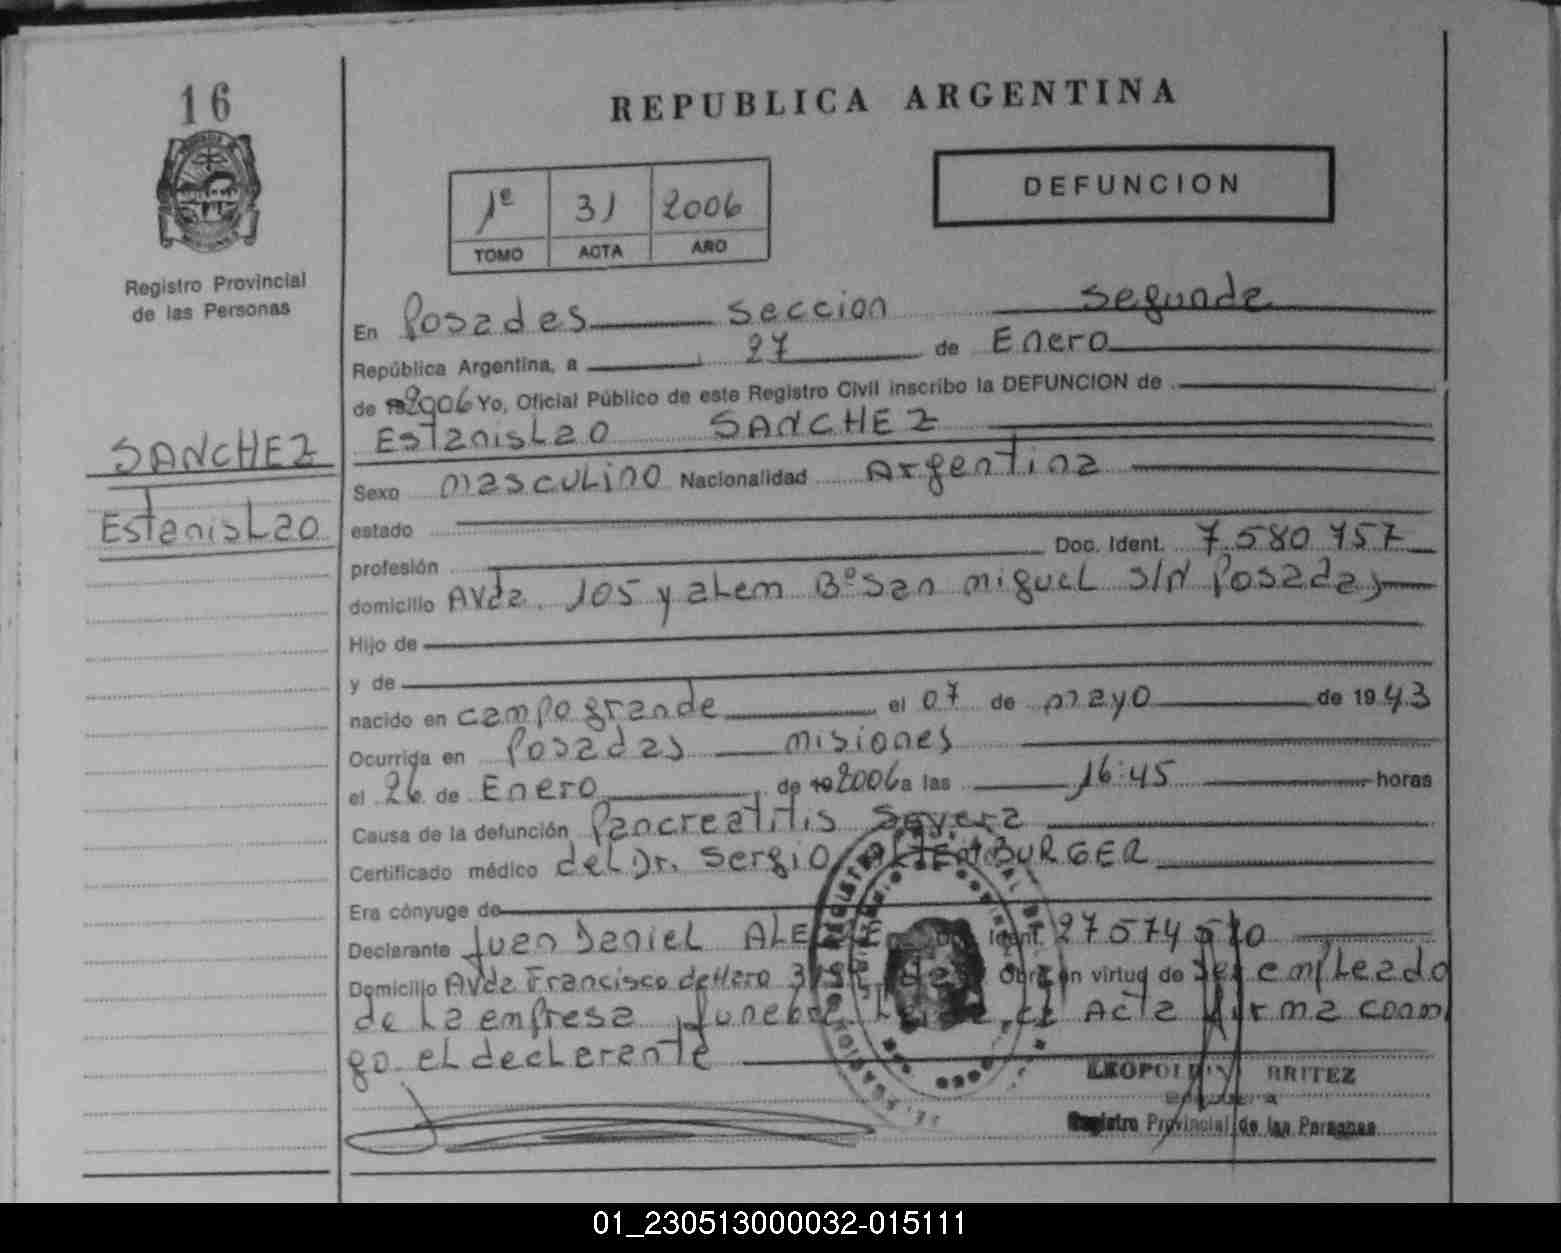 16
REPUBLICA ARGENTINA
DEFUNCION
1º 31 2006
TOMO ACTA AÑO
Registro Provincial
de las Personas
SANCHEZ
Estanislao
En Posadas seccion segunda
República Argentina, a 27 de Enero
de 2006 Yo, Oficial Público de este Registro Civil inscribo la DEFUNCION de
Estanislao SANCHEZ
Sexo masculino Nacionalidad Argentina
estado
profesión Doc. Ident. 7.580 757
domicilio Avda. 105 y alem Bº San miguel S/N Posadas
Hijo de
y de
nacido en campo grande el 07 de mayo de 1943
Ocurrida en Posadas misiones
el 26 de Enero de 2006 a las 16:45 horas
Causa de la defunción Pancreatitis Severa
Certificado médico del Dr. Sergio ALTENBURGER
Era cónyuge de
Declarante Juan Daniel Ident. 27574
Domicilio Avda Francisco de Haro Obra en virtud de ser empleado
de la empresa funebre Acta firma conmi
go el declarante
LEOPOLDINA BRITEZ
Registro Provincial de las Personas
01_230513000032-015111